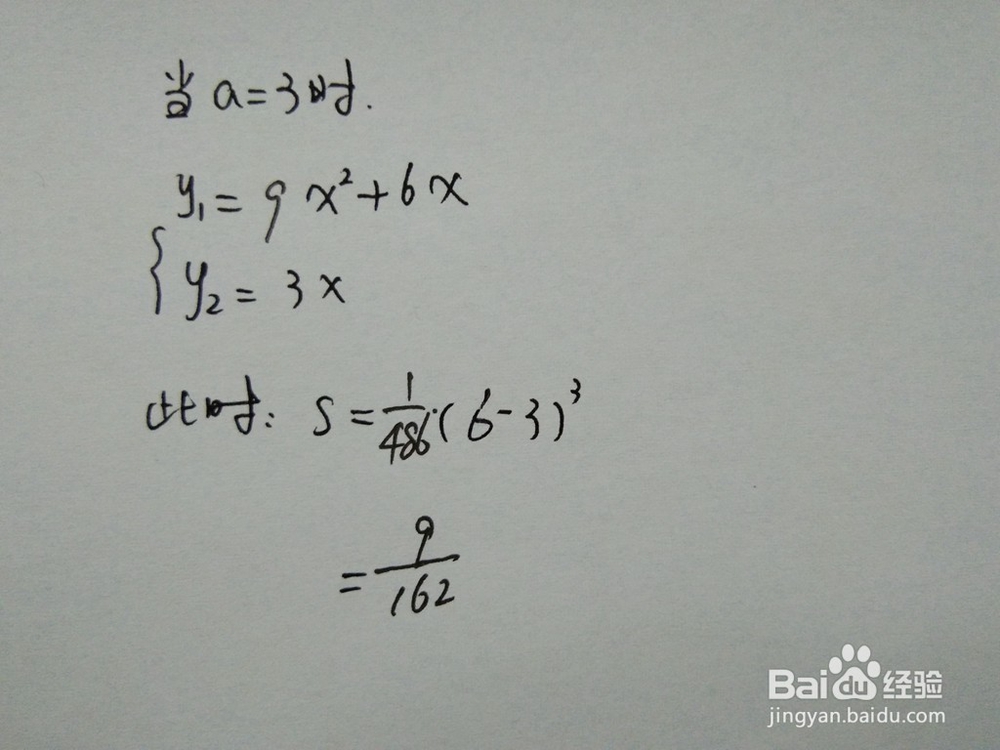 当 a=3时.
y₁= 9x²+6x
{ y₂= 3x
此时: S=1/486·(6-3)³
=9/162
Baidu经验
jingyan.baidu.com